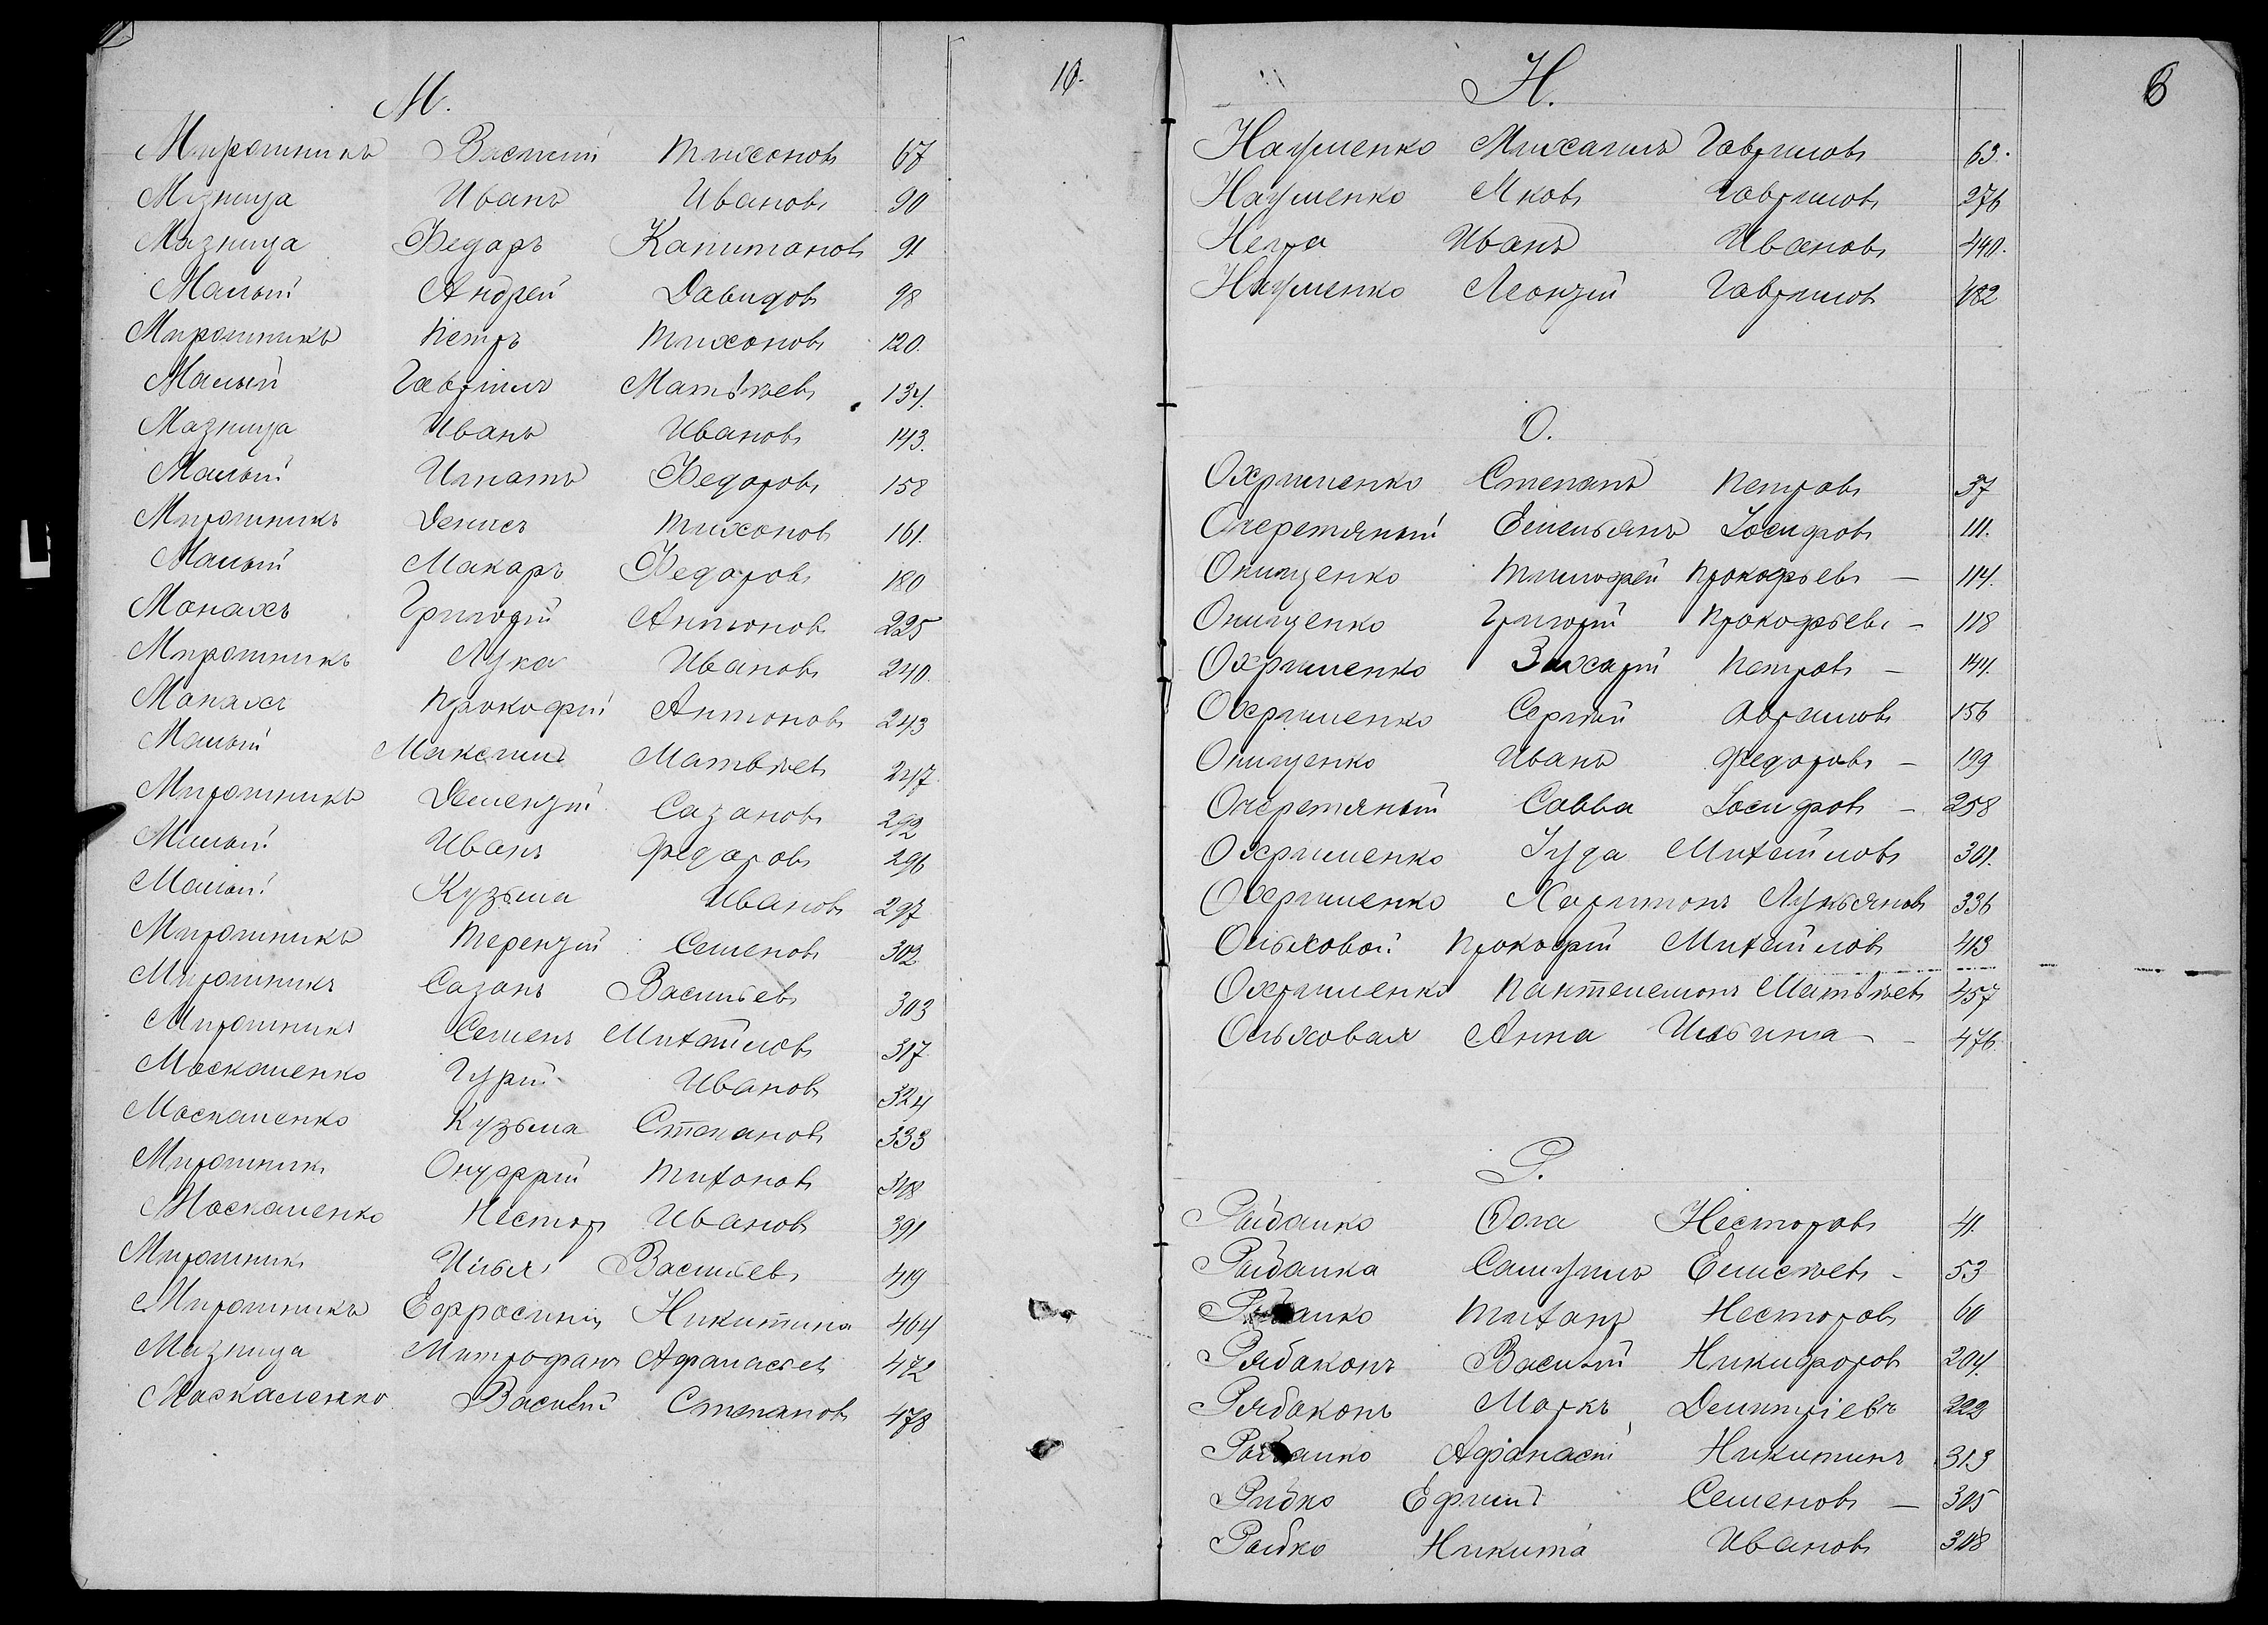 10.
М.
Мирошникъ Василій Тихоновъ 67
Мазница Иванъ Ивановъ 90
Мазница Федоръ Капитоновъ 91
Малый Андрей Давидовъ 98
Мирошникъ Петръ Тихоновъ 120.
Малый Гавріилъ Матвѣевъ 134.
Мазница Иванъ Ивановъ 143.
Малый Игнатъ Федоровъ 158
Мирошникъ Денисъ Тихоновъ 161.
Малый Макаръ Федоровъ 180
Монахъ Григорій Антоновъ 225
Мирошникъ Лука Ивановъ 240.
Монахъ Прокофій Антоновъ 243
Малый Максимъ Матвѣевъ 247.
Мирошникъ Дементій Сазоновъ 292
Малый Иванъ Федоровъ 296
Малый Кузьма Ивановъ 297
Мирошникъ Терентій Семеновъ 302.
Мирошникъ Сазонъ Васильевъ 303
Мирошникъ Семенъ Михайловъ 317.
Москаленко Гурій Ивановъ 324
Москаленко Кузьма Степановъ 333
Мирошникъ Онуфрій Тихоновъ 348
Москаленко Несторъ Ивановъ 391
Мирошникъ Илья Васильевъ 419
Мирошникъ Ефросинія Никитина 464
Мазница Митрофанъ Афанасьев 472
Москаленко Василій Степановъ 478
Н.
Науменко Михаилъ Гавриловъ 63.
Науменко Яковъ Гавриловъ 276
Иванъ Ивановъ 440.
Науменко Леонтій Гавриловъ 482
О.
Охрименко Степанъ Петровъ 37
Очеретяный Емельянъ Іосифовъ 111.
Онищенко Тимофей Прокофьевъ — 114.
Онищенко Григорій Прокофьевъ — 118
Охрименко Захарій Петровъ — 144.
Охрименко Сергій Абрамовъ 156
Онищенко Иванъ Федоровъ — 199
Очеретяный Савва Іосифовъ — 258
Охрименко Іуда Михайловъ 301.
Охрименко Харитонъ Лукьяновъ 336
Ольховой Прокофій Михайловъ 413
Охрименко Пантелемонъ Матвѣевъ 457
Ольховая Анна Ильина — 476.
Р.
Рыбалко Фома Несторовъ 41.
Рыбалка Самуилъ Елисѣевъ - 53
Рыбалко Тихонъ Несторовъ 60
Рябоконъ Василій Никифоровъ 204.
Рябоконъ Маркъ Дмитріевъ 222
Рыбалко Афанасій Никитинъ 313
Рыбко Ефимъ Семеновъ — 305
Рыбко Никита Ивановъ 308